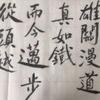 雄關漫道
真如鐵
而今邁步
從頭越